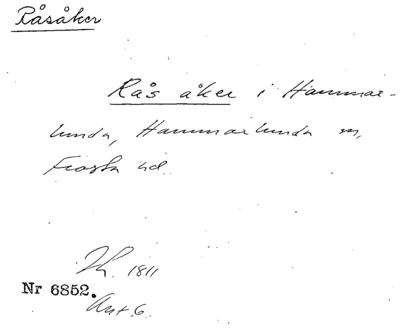 Råsåker
Rås åker i Hammar-
lunda, Hammarlunda sn,
Frosta hd.
1811
Nr 6852.
Ant 6.